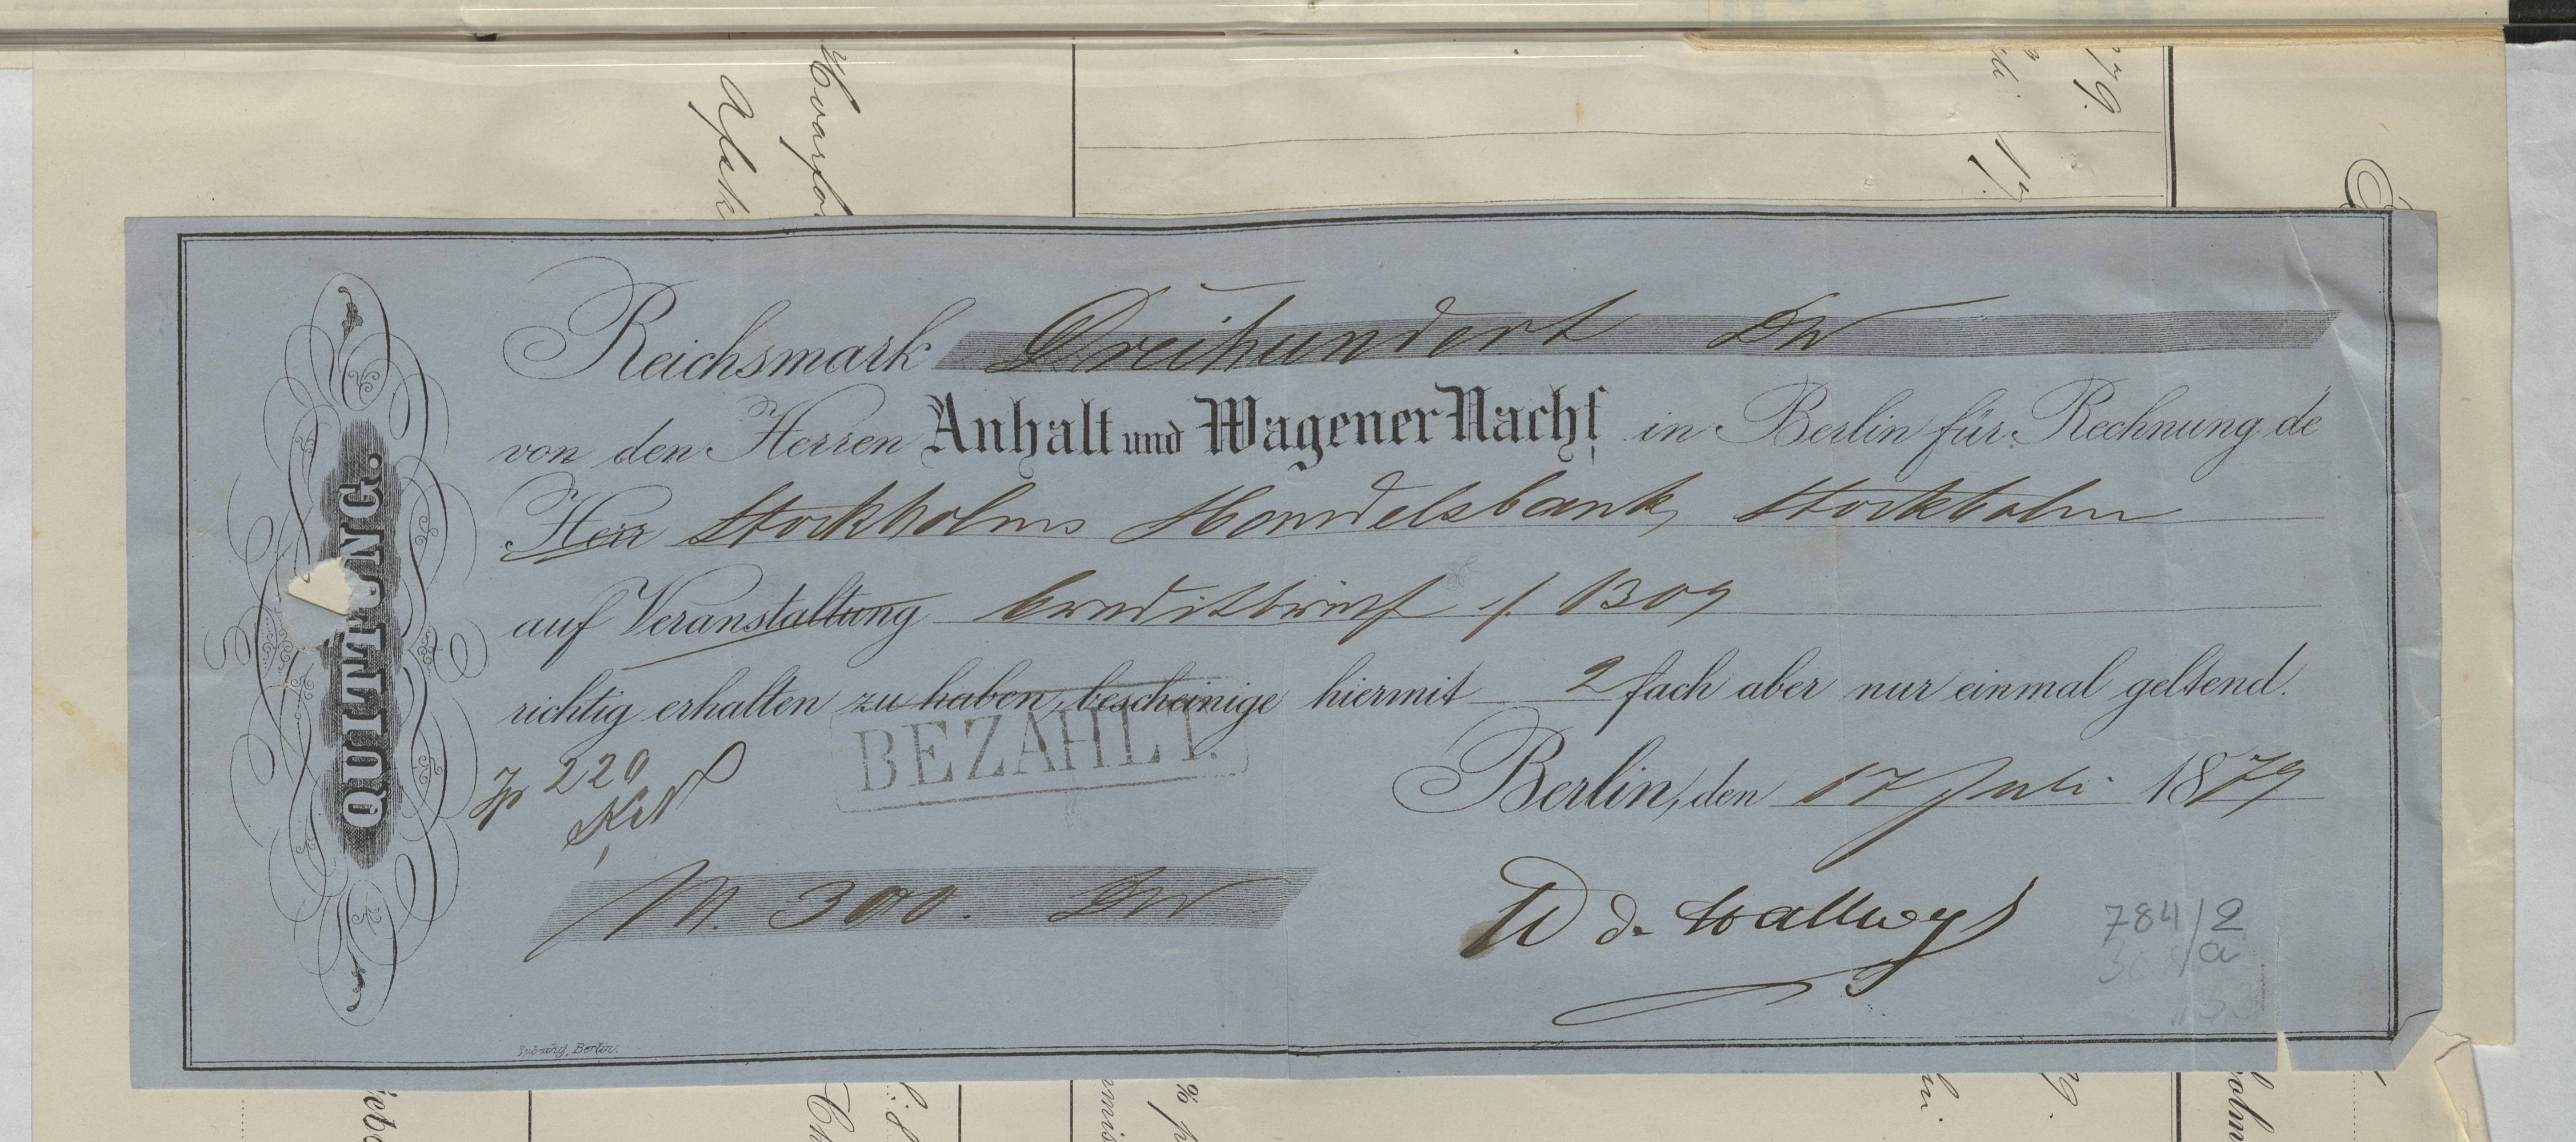 QUITTUNG.
Reichsmark Dreihundert
von den Herren Anhalt und Wagener Nachf. in Berlin für Rechnung de
Herr Stockholms Handelsbank, Stockholm
auf Veranstaltung Creditbrief 1309
richtig erhalten zu haben, bescheinige hiermit 2 fach aber nur einmal geltend.
BEZAHLT.
220
Berlin, den 17 Juli 1879
M. 300.
W d. Hallwyl
784/2
a
Berlin.